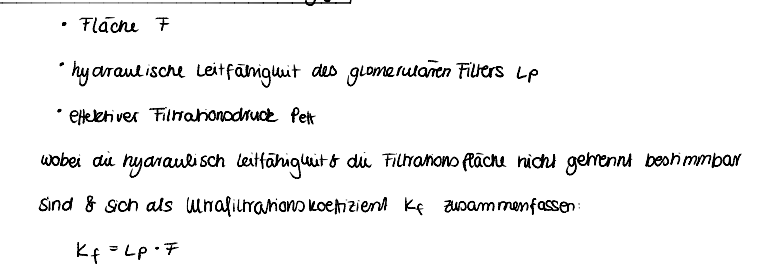 • Fläche F
• hydraulische Leitfähigkeit des glomerulären Filters Lp
• effektiver Filtrationsdruck Peff
wobei die hydraulisch Leitfähigkeit & die Filtrationsfläche nicht getrennt bestimmbar
sind & sich als Ultrafiltrationskoeffizient Kf zusammenfassen:
Kf = Lp · F